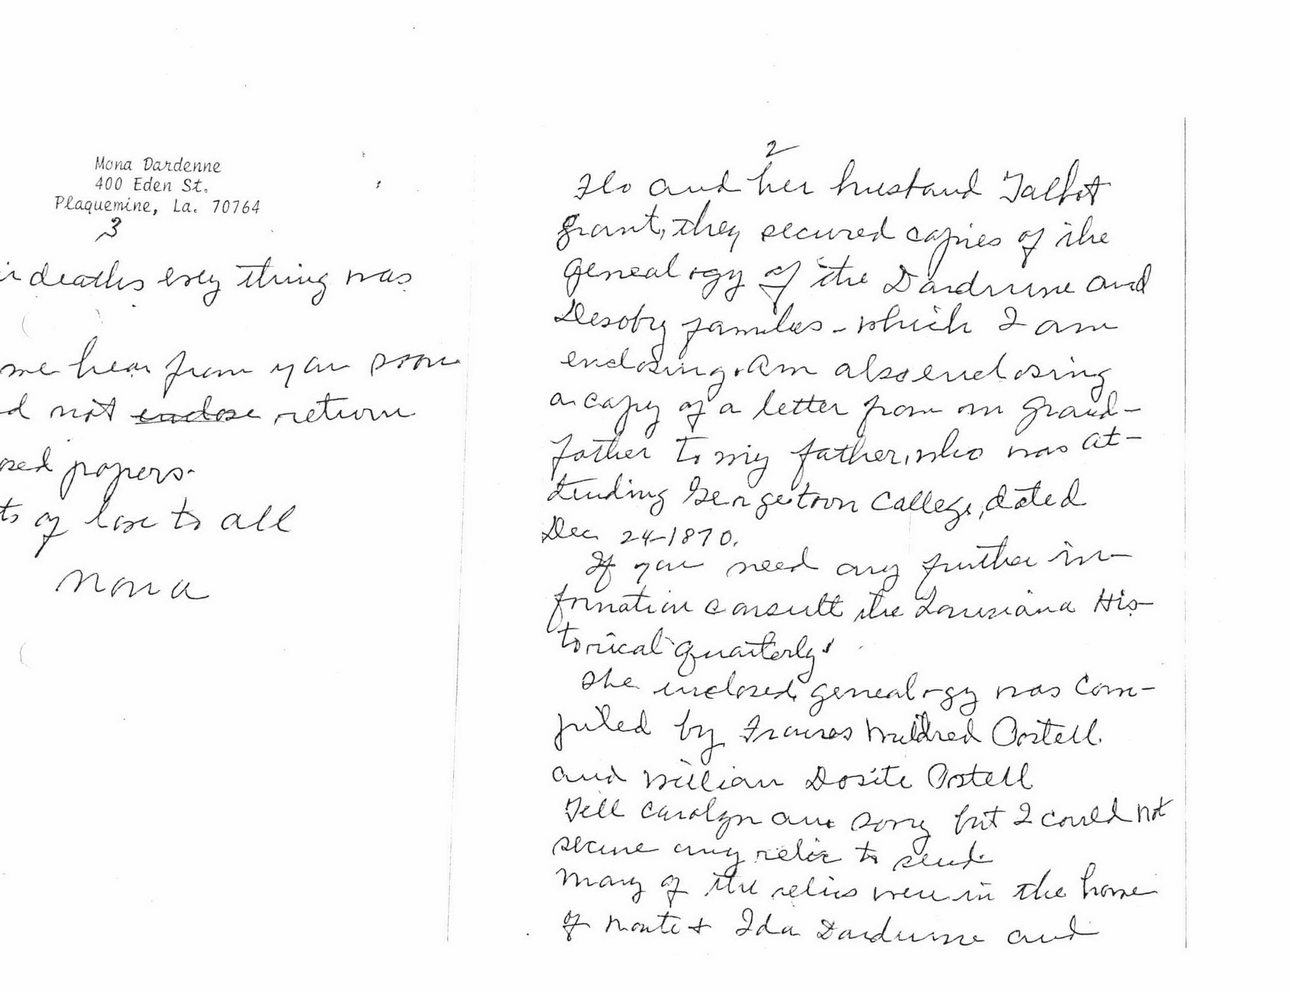 Mona Dardenne
400 Eden St.
Plaquemine, La. 70764
3
deaths every thing was
me hear from you soon
d not enclose return
osed papers.
ts of love to all
Mona
2
Flo and her husband Talbot
Grant, they secured copies of the
genealogy of the Dardenne and
Desobry families - which I am
enclosing. Am also enclosing
a copy of a letter from my grand-
father to my father, who was at-
tending Georgetown College, dated
Dec. 24-1870.
If you need any further in-
formation consult the Louisiana His-
torical Quarterly.
The enclosed genealogy was com-
piled by Frances Mildred Postell
and William Dosite Postell
Tell Carolyn am sorry but I could not
secure any relic to send
Many of the relics were in the home
of Monte + Ida Dardenne and